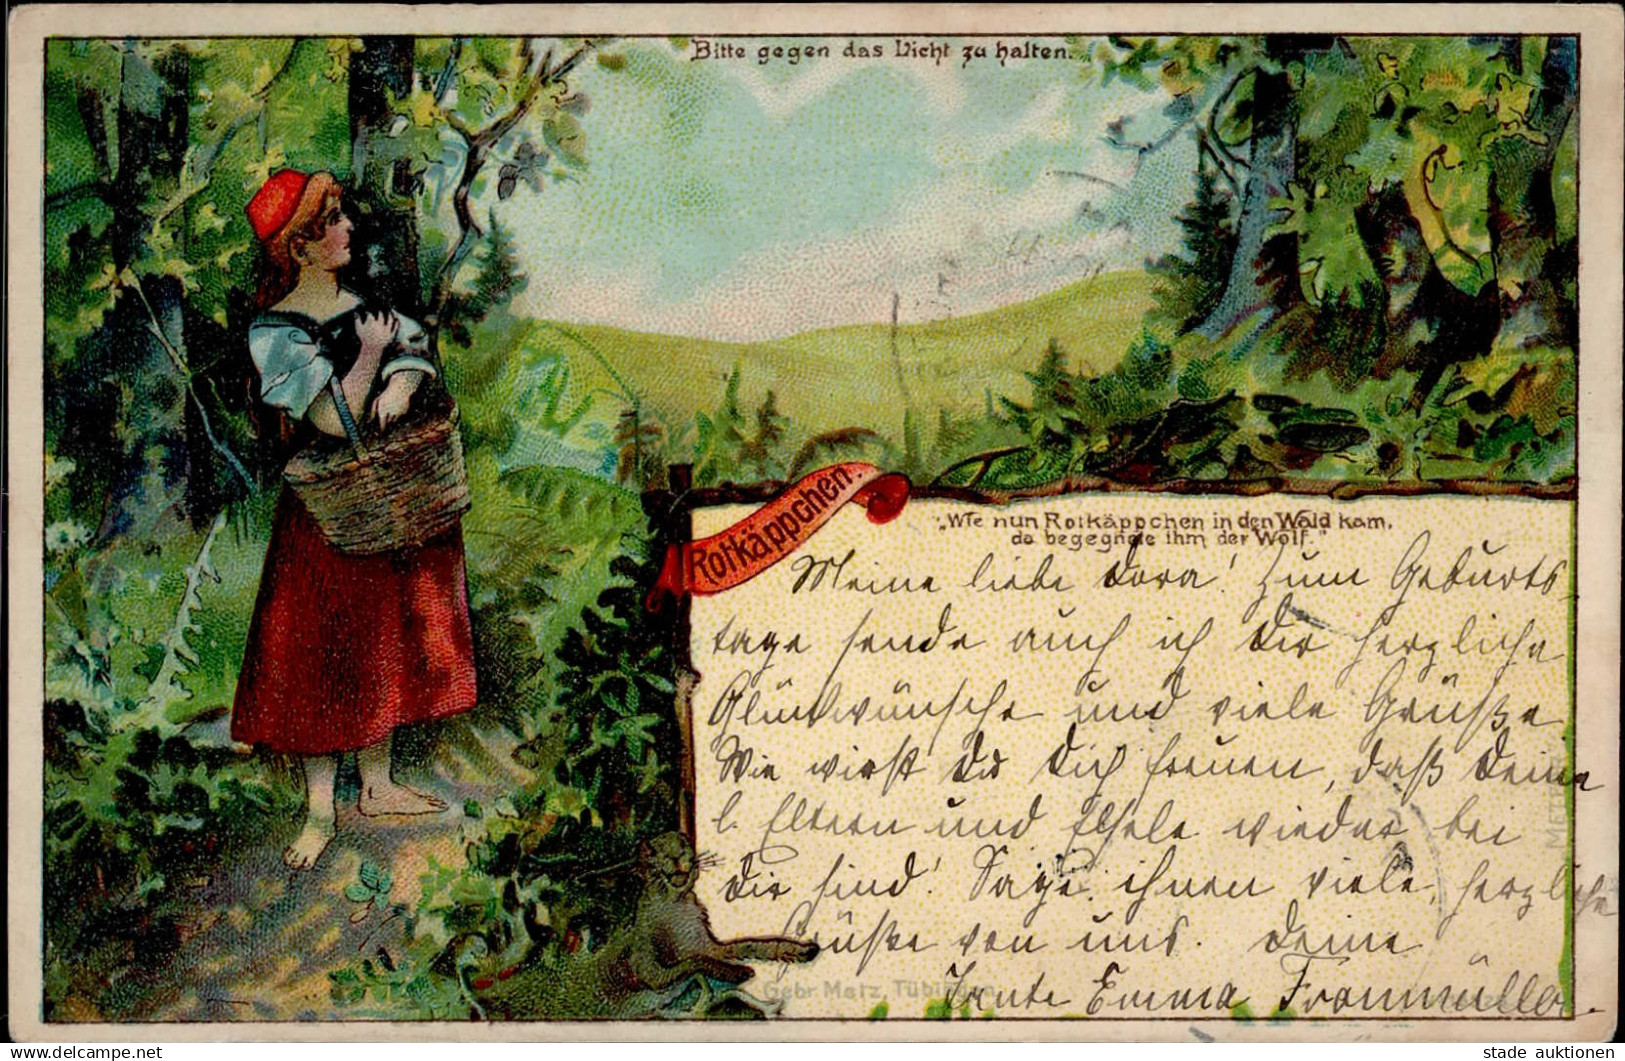 Bitte gegen das Licht zu halten.
Rotkäppchen.
„Wie nun Rotkäppchen in den Wald kam,
da begegnete ihm der Wolf."
Meine liebe Dora! Zum Geburts
tage sende auch ich Dir herzliche
Glückwünsche und viele Grüße
Wie wirst Du Dich freuen, daß Deine
l. Eltern und wieder bei
Dir sind! Sage ihnen viele, herzliche
Grüße von uns. Deine
Tante Emma Fronmüller.
Gebr. Metz, Tübingen
stade auktionen